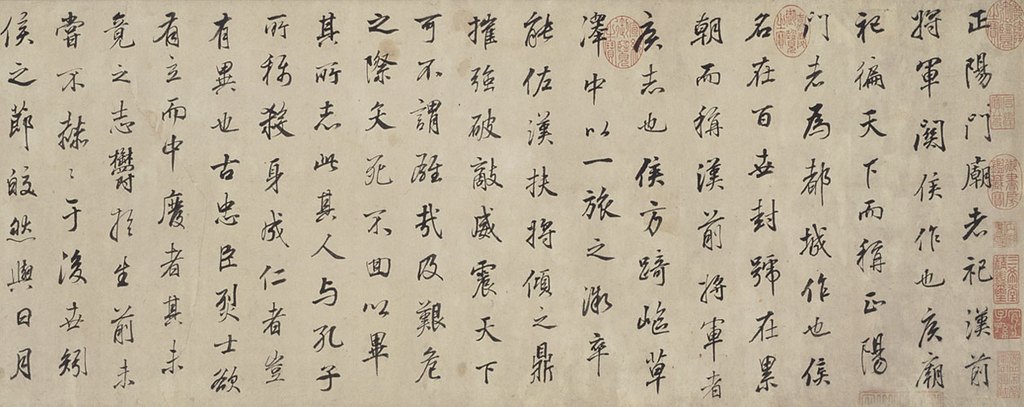 正陽門廟者祀漢前
將軍關侯作也侯廟
祀徧天下而稱正陽
門者為都城作也侯
名在百世封號在累
朝而稱漢前將軍者
侯志也侯方踦嶇草
澤中以一旅之微卒
能佐漢扶將傾之鼎
摧強破敵威震天下
可不謂雄哉及艱危
之際矢死不回以畢
其所志此其人与孔子
所稱殺身成仁者豈
有異也古忠臣烈士欲
有立而中廢者其未
竟之志鬱於生前未
嘗不赫〻于後世矧
侯之節皎然與日月